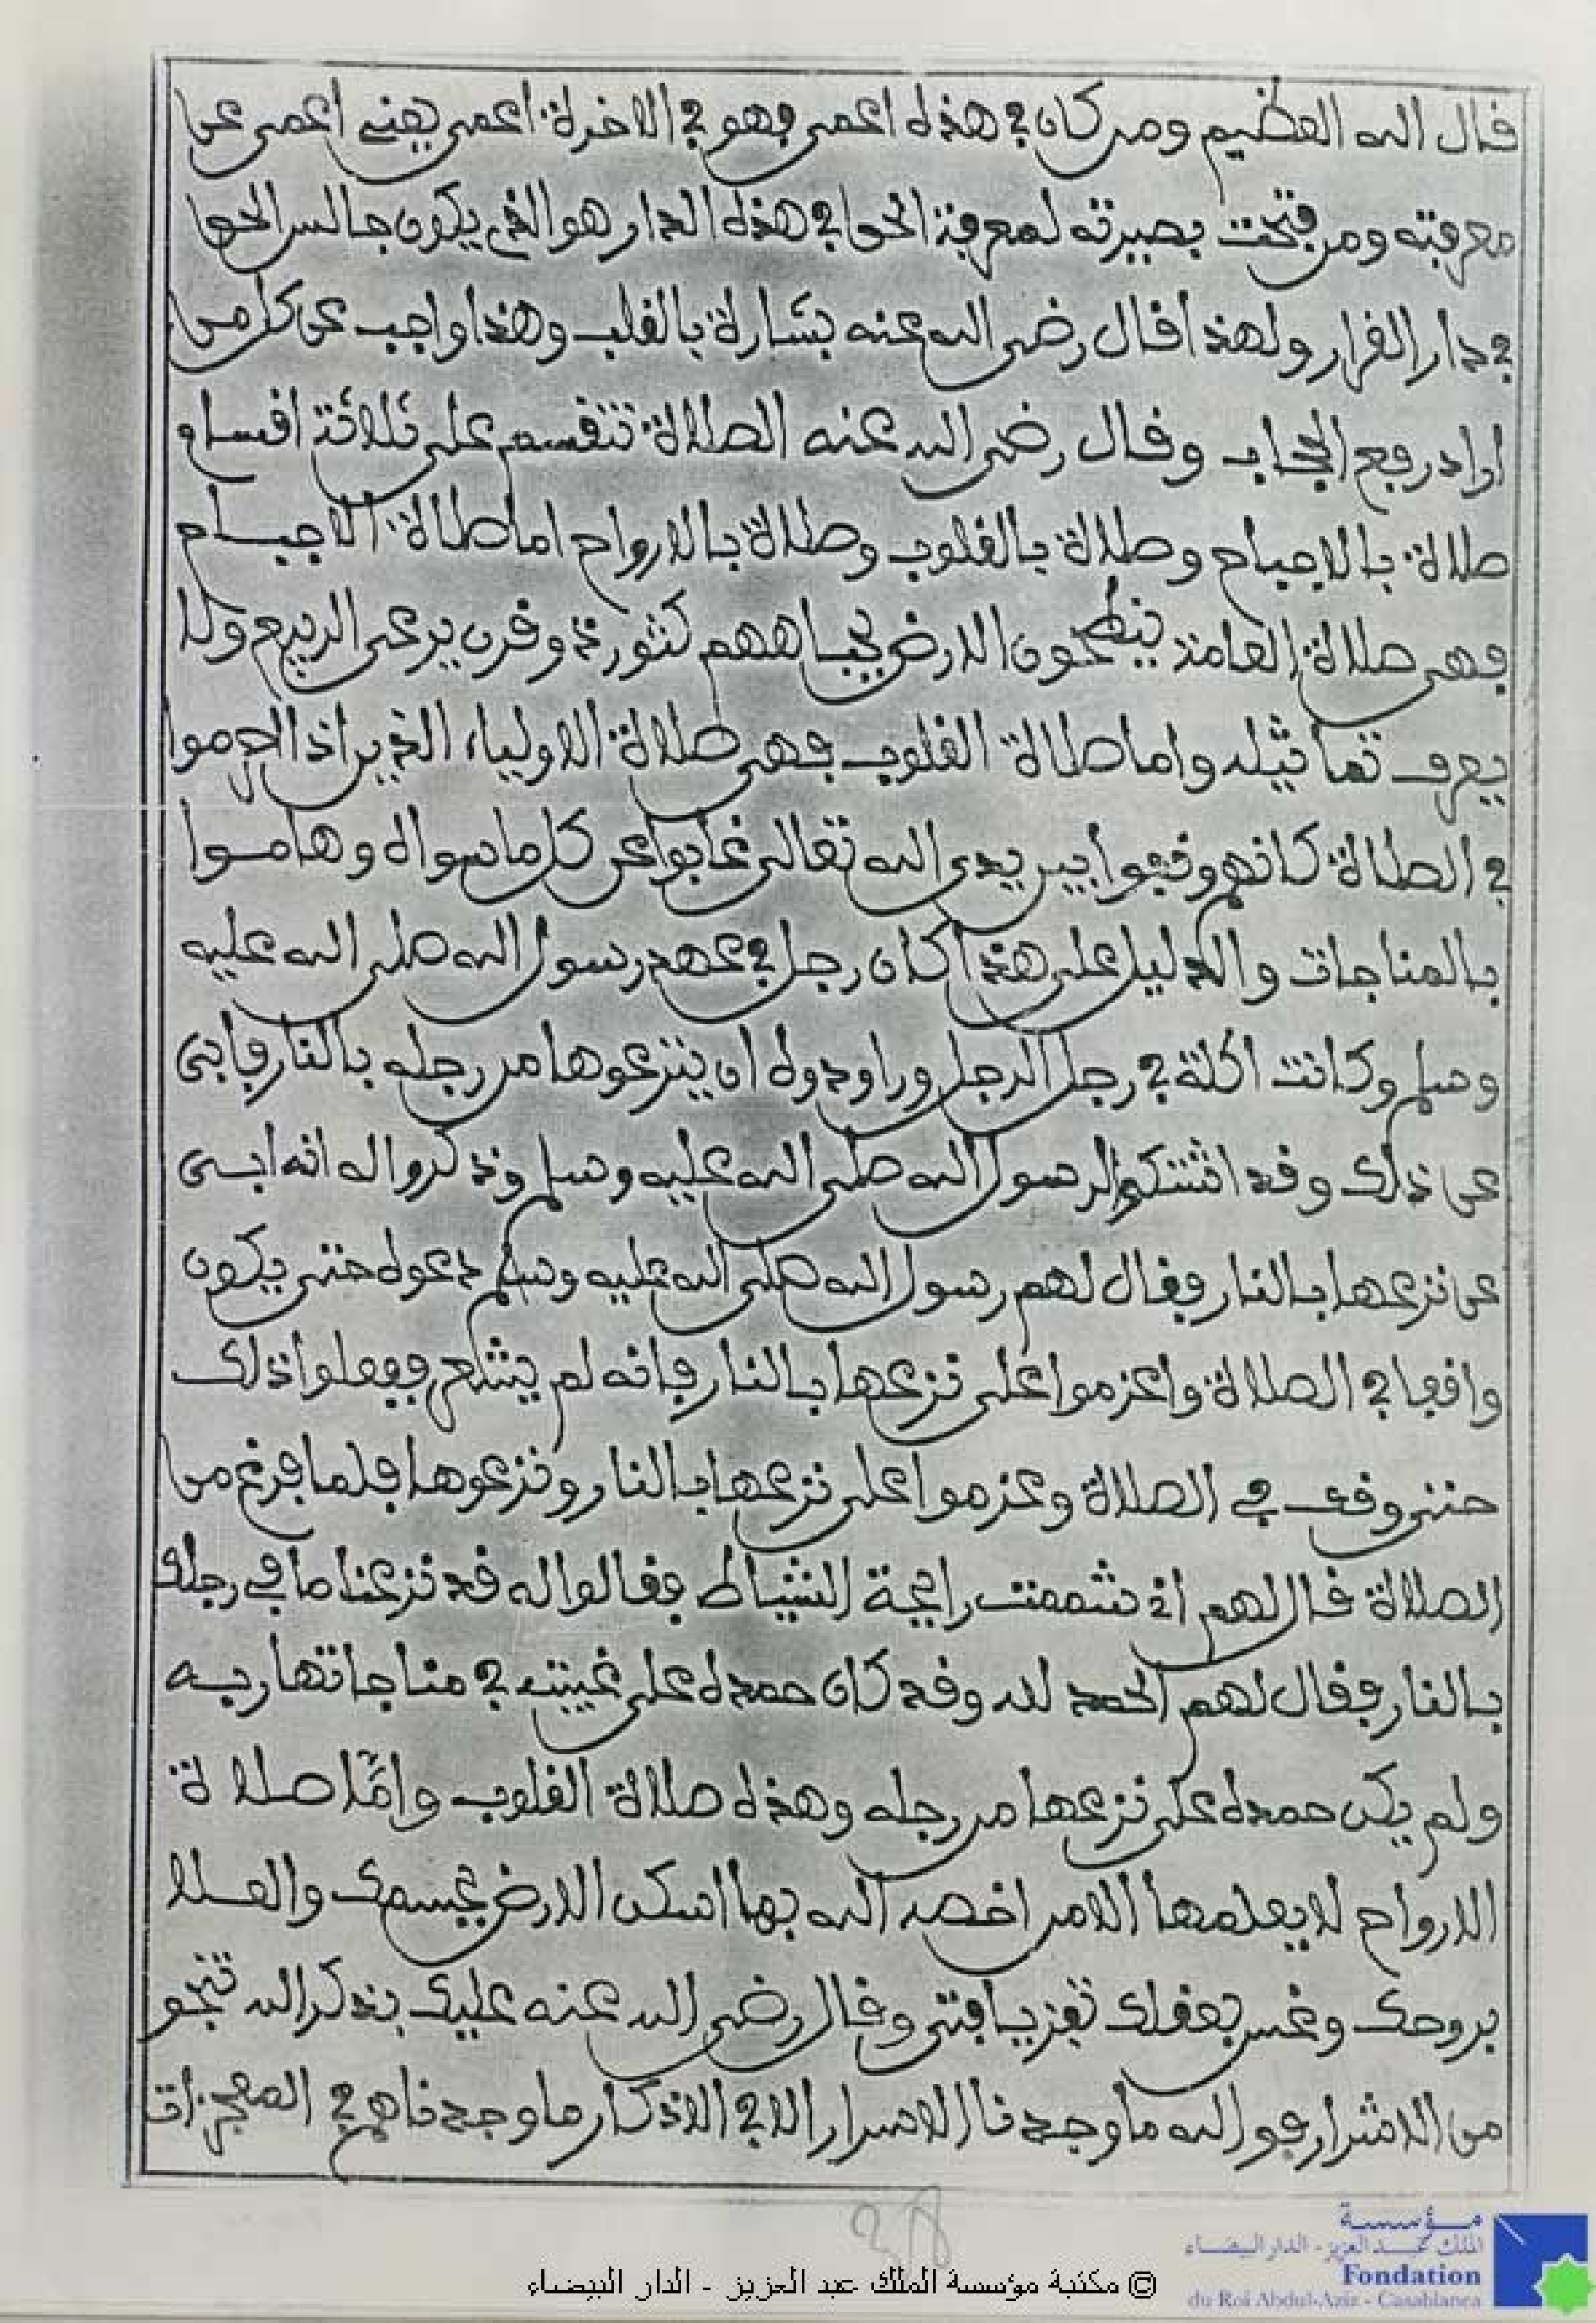 قال الله العظيم ومن كان في هذه اعمى فهو في الاخرة اعمى يعني اعمى عن
معرفته ومن فتحت بصيرته لمعرفة الحق في هذه الدار هو الذي يكون جالس الحق
في دار القرار ولهذا قال رضي الله عنه بشارة بالقلب وهذا واجب عن كل من
اراد رفع الحجاب وقال رضي الله عنه الصلاة تنقسم على ثلاثة اقسام
صلاة بالاجباح وصلاة بالقلوب وصلاة بالارواح اما صلاة الاجسام
فهي صلاة العامة ينطحون الارض بجباههم كثور ذو قرن يرعى الربيع ولا
يعرف تماثيله واما صلاة القلوب فهي صلاة الاولياء الذين اذا احرموا
في الصلاة كانهم وقفوا بين يدي الله تعالى غابوا عن كل ما سواه وهاموا
بالمناجات والدليل على هذا كان رجل في عهد رسول الله صلى الله عليه
وسلم وكانت اكلة في رجل الرجل وراودوه ان ينزعوها من رجله بالنار فابى
عن ذلك وقد اشتكوا لرسول الله صلى الله عليه وسلم وذكروا له انه ابى
عن نزعها بالنار فقال لهم رسول الله صلى الله عليه وسلم دعوه حتى يكون
واقفا في الصلاة واعزموا على نزعها بالنار فانه لم يشلع ففعلوا ذلك
حتى وقف في الصلاة وعزموا على نزعها بالنار ونزعوها فلما فرغ من
الصلاة قال لهم اني شممت رايحة الشياط فقالوا له قد نزعنا ما في رجلك
بالنار فقال لهم الحمد لله وقد كان حمده على غيبته في مناجاتها ربه
ولم يكن حمده على نزعها من رجله وهذه صلاة القلوب وامّا صلاة
الارواح لا يعلمها الا من اخصه الله بها اسكن الارض بجسمك والعلا
بروحك وغس بعقلك تفز يا فتى وقال رضي الله عنه عليك بذكر الله تنجو
من الاشرار فو الله ما وجدنا الاسرار الا في الاذكار ما وجدناهم في المعجزات
مؤسسة
الملك عبد العزيز - الدار البيضاء
Fondation
du Roi Abdul-Aziz - Casablanca
© مكتبة مؤسسة الملك عبد العزيز - الدار البيضاء